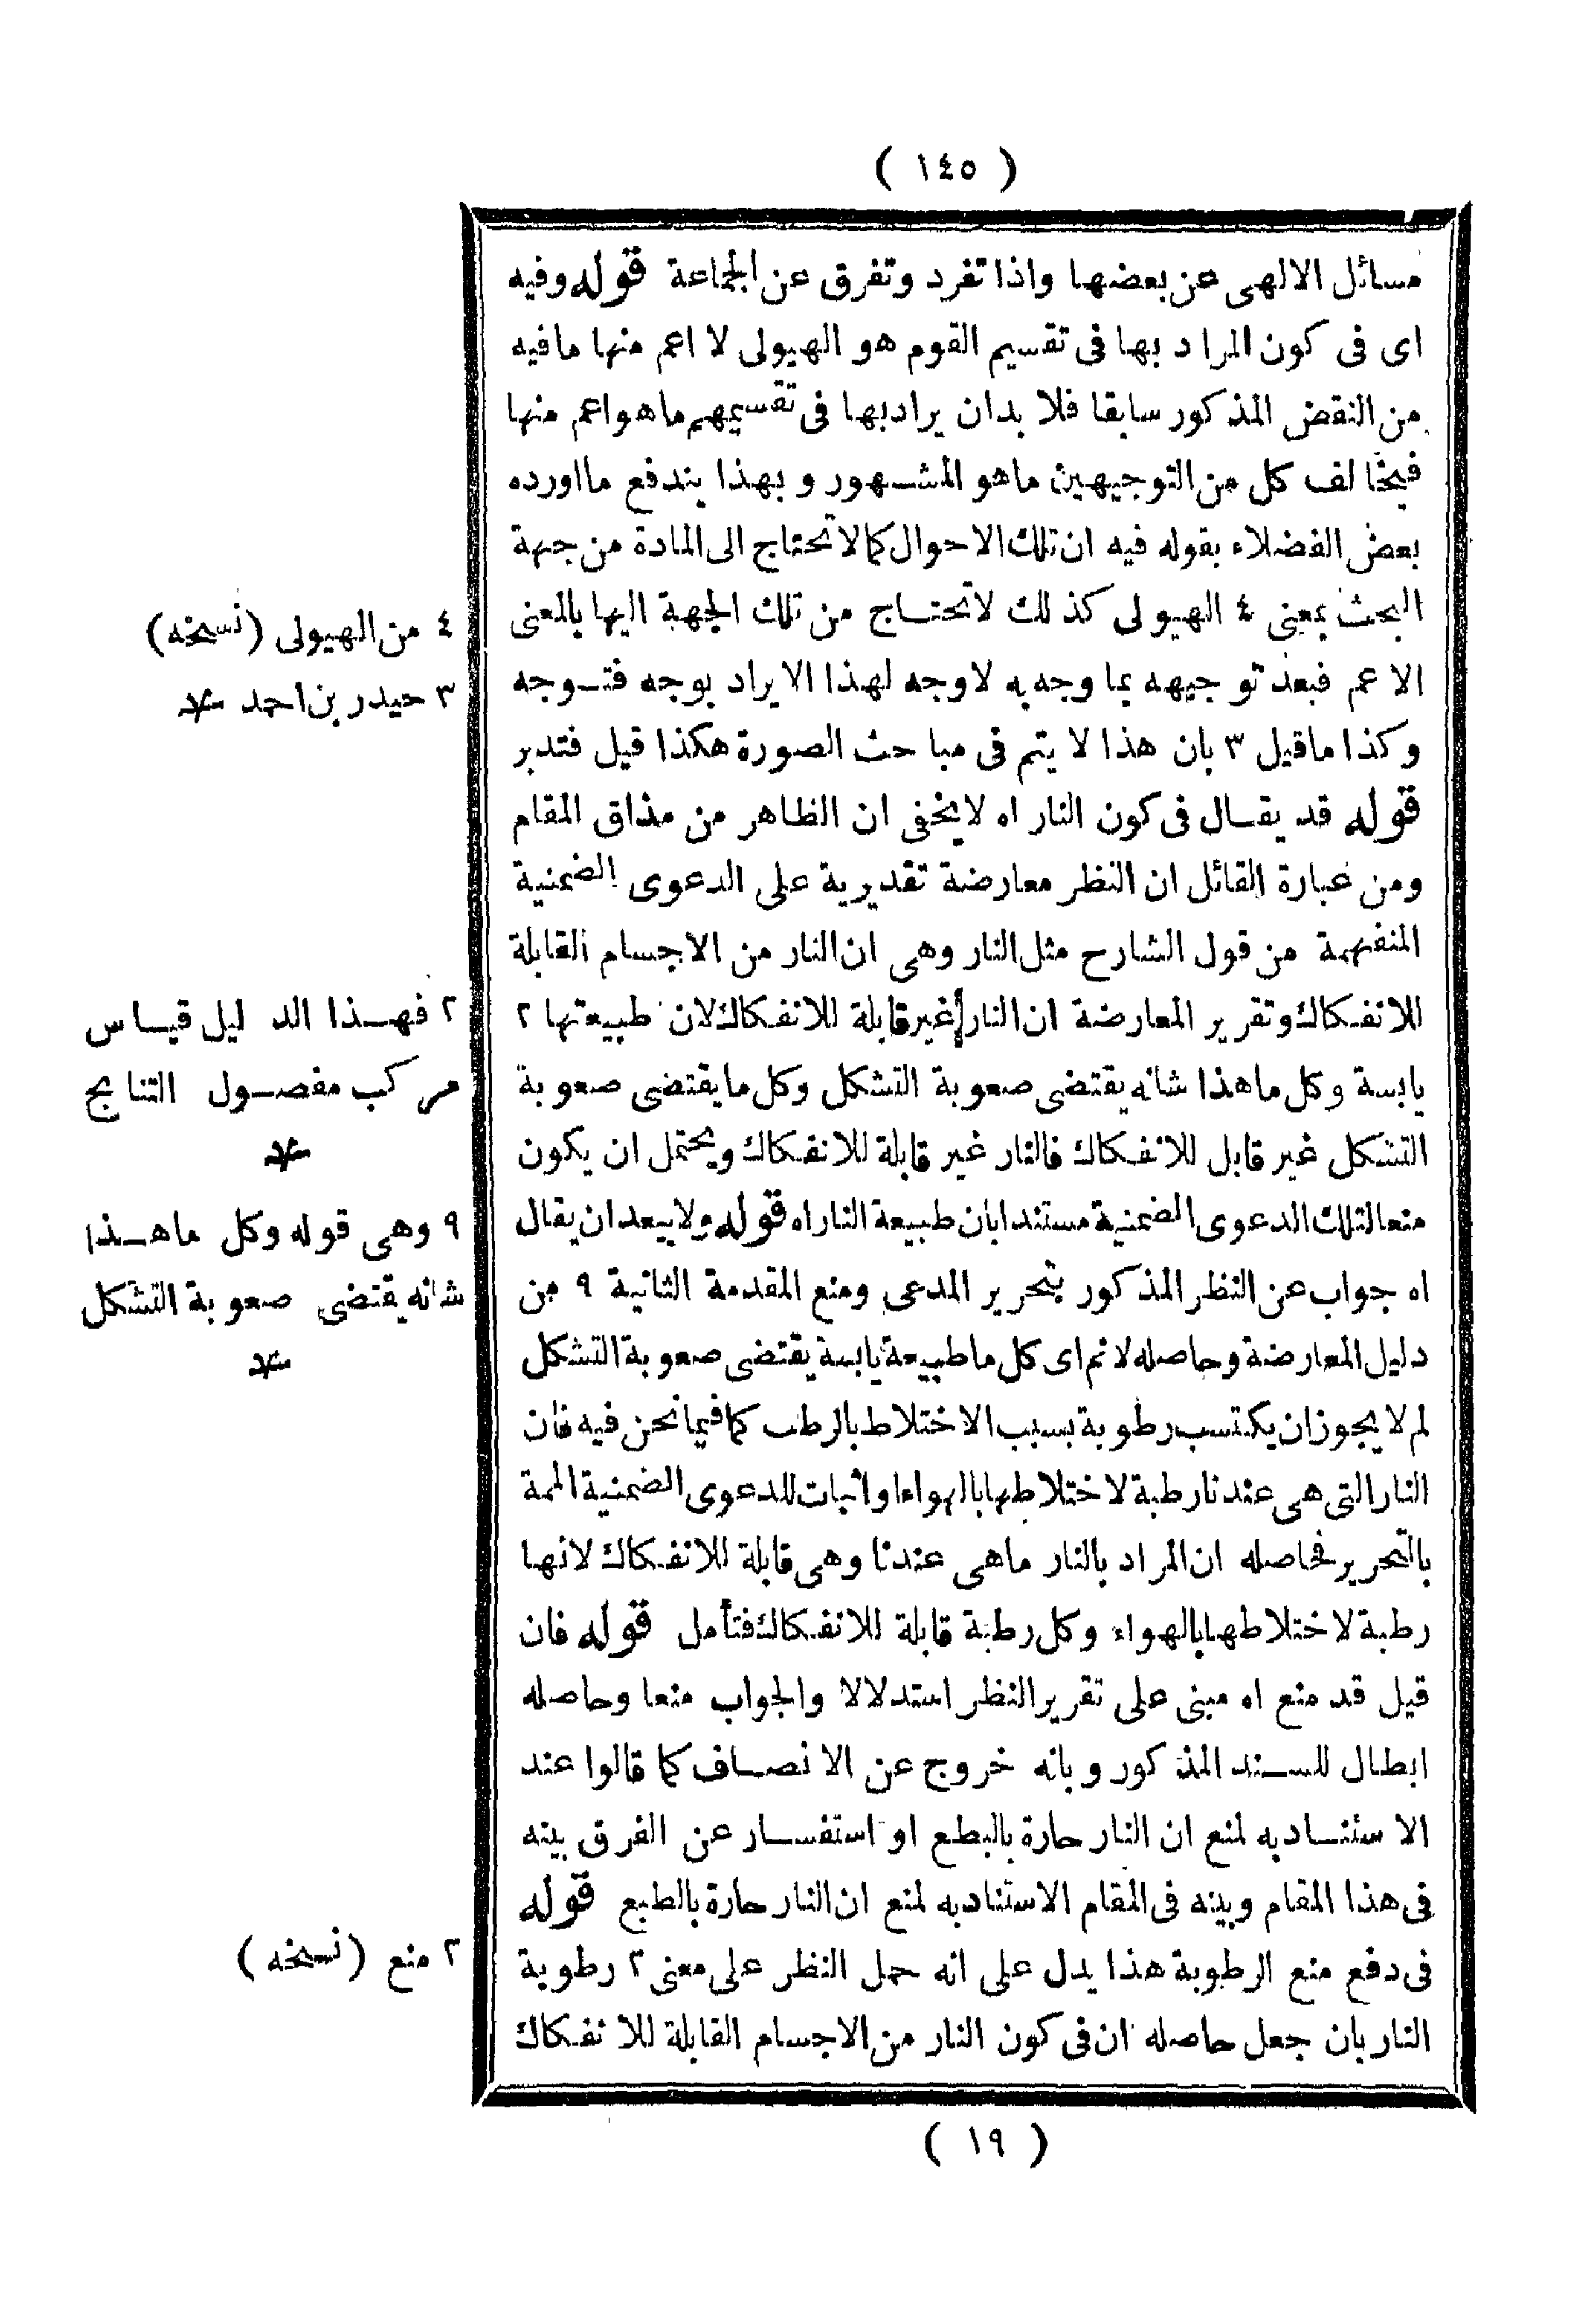 ( ١٤٥ )
مسائل الالهى عن بعضها واذا تفرد وتفرق عن الجماعة قوله وفيه
اى فى كون المراد بها فى تقسيم القوم هو الهيولى لا اعم منها مافيه
من النقض المذكور سابقا فلا بدان يرادبها فى تقسيمهم ماهو اعم منها
فيخالف كل من التوجيهين ماهو المشهور وبهذا يندفع مااورده
بعض الفضلاء بقوله فيه ان تلك الاحوال كما لا تحتاج الى المادة من جهة
البحث بمعنى ٤ الهيولى كذلك لاتحتاج من تلك الجهة اليها بالمعنى
الاعم فبعد توجيهه بما وجه به لاوجه لهذا الايراد بوجه فتوجه
وكذا ماقيل ٣ بان هذا لا يتم فى مباحث الصورة هكذا قيل فتدبر
قوله قد يقال فى كون النار اه لايخفى ان الظاهر من مذاق المقام
ومن عبارة القائل ان النظر معارضة تقديرية على الدعوى الضمنية
المنفهمة من قول الشارح مثل النار وهى ان النار من الاجسام القابلة
للانفكاك وتقرير المعارضة ان النار غير قابلة للانفكاك لان طبيعتها ٢
يابسة وكل ماهذا شانه يقتضى صعوبة التشكل وكل مايقتضى صعوبة
التشكل غير قابل للانفكاك فالنار غير قابلة للانفكاك ويحتمل ان يكون
منعا لتلك الدعوى الضمنية مستندا بان طبيعة النار اه قوله ولا يبعد ان يقال
اه جواب عن النظر المذكور بتحرير المدعى ومنع المقدمة الثانية ٩ من
دليل المعارضة وحاصله لانم اى كل ماطبيعة يابسة يقتضى صعوبة التشكل
لم لا يجوز ان يكتسب رطوبة بسبب الاختلاط بالرطب كما فيما نحن فيه فان
النار التى هى عندنا رطبة لاختلاطها بالهواء او اثبات للدعوى الضمنية الممة
بالتحرير فحاصله ان المراد بالنار ماهى عندنا وهى قابلة للانفكاك لانها
رطبة لاختلاطها بالهواء وكل رطبة قابلة للانفكاك فتأمل قوله فان
قيل قد منع اه مبنى على تقرير النظر استدلالا والجواب منعا وحاصله
ابطال للسند المذكور وبانه خروج عن الانصاف كما قالوا عند
الاستناد به لمنع ان النار حارة بالبطع او استفسار عن الفرق بينه
فى هذا المقام وبينه فى المقام الاستنادبه لمنع ان النار حارة بالطبع قوله
فى دفع منع الرطوبة هذا يدل على انه حمل النظر على معنى ٢ رطوبة
النار بان جعل حاصله ان فى كون النار من الاجسام القابلة للانفكاك
٤ من الهيولى (نسخه)
٣ حيدر بن احمد
٢ فهذا الدليل قياس
مركب مفصول النتايج
٩ وهى قوله وكل ماهذا
شانه يقتضى صعوبة التشكل
٢ منع (نسخه)
( ١٩ )